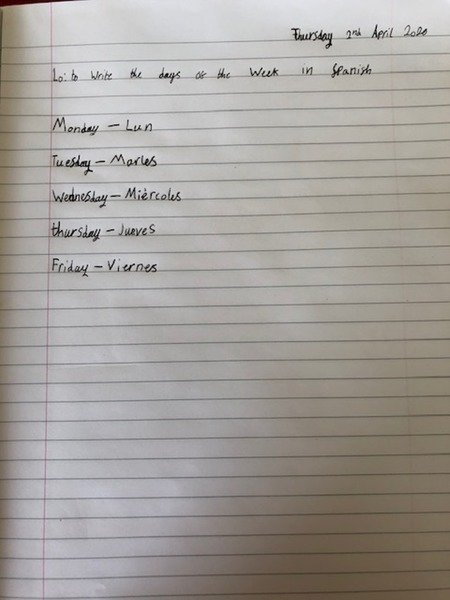 Thursday 2nd April 2020
Lo: to write the days of the Week in Spanish
Monday – Lun
Tuesday – Martes
Wednesday – Miércoles
thursday – Jueves
Friday – Viernes